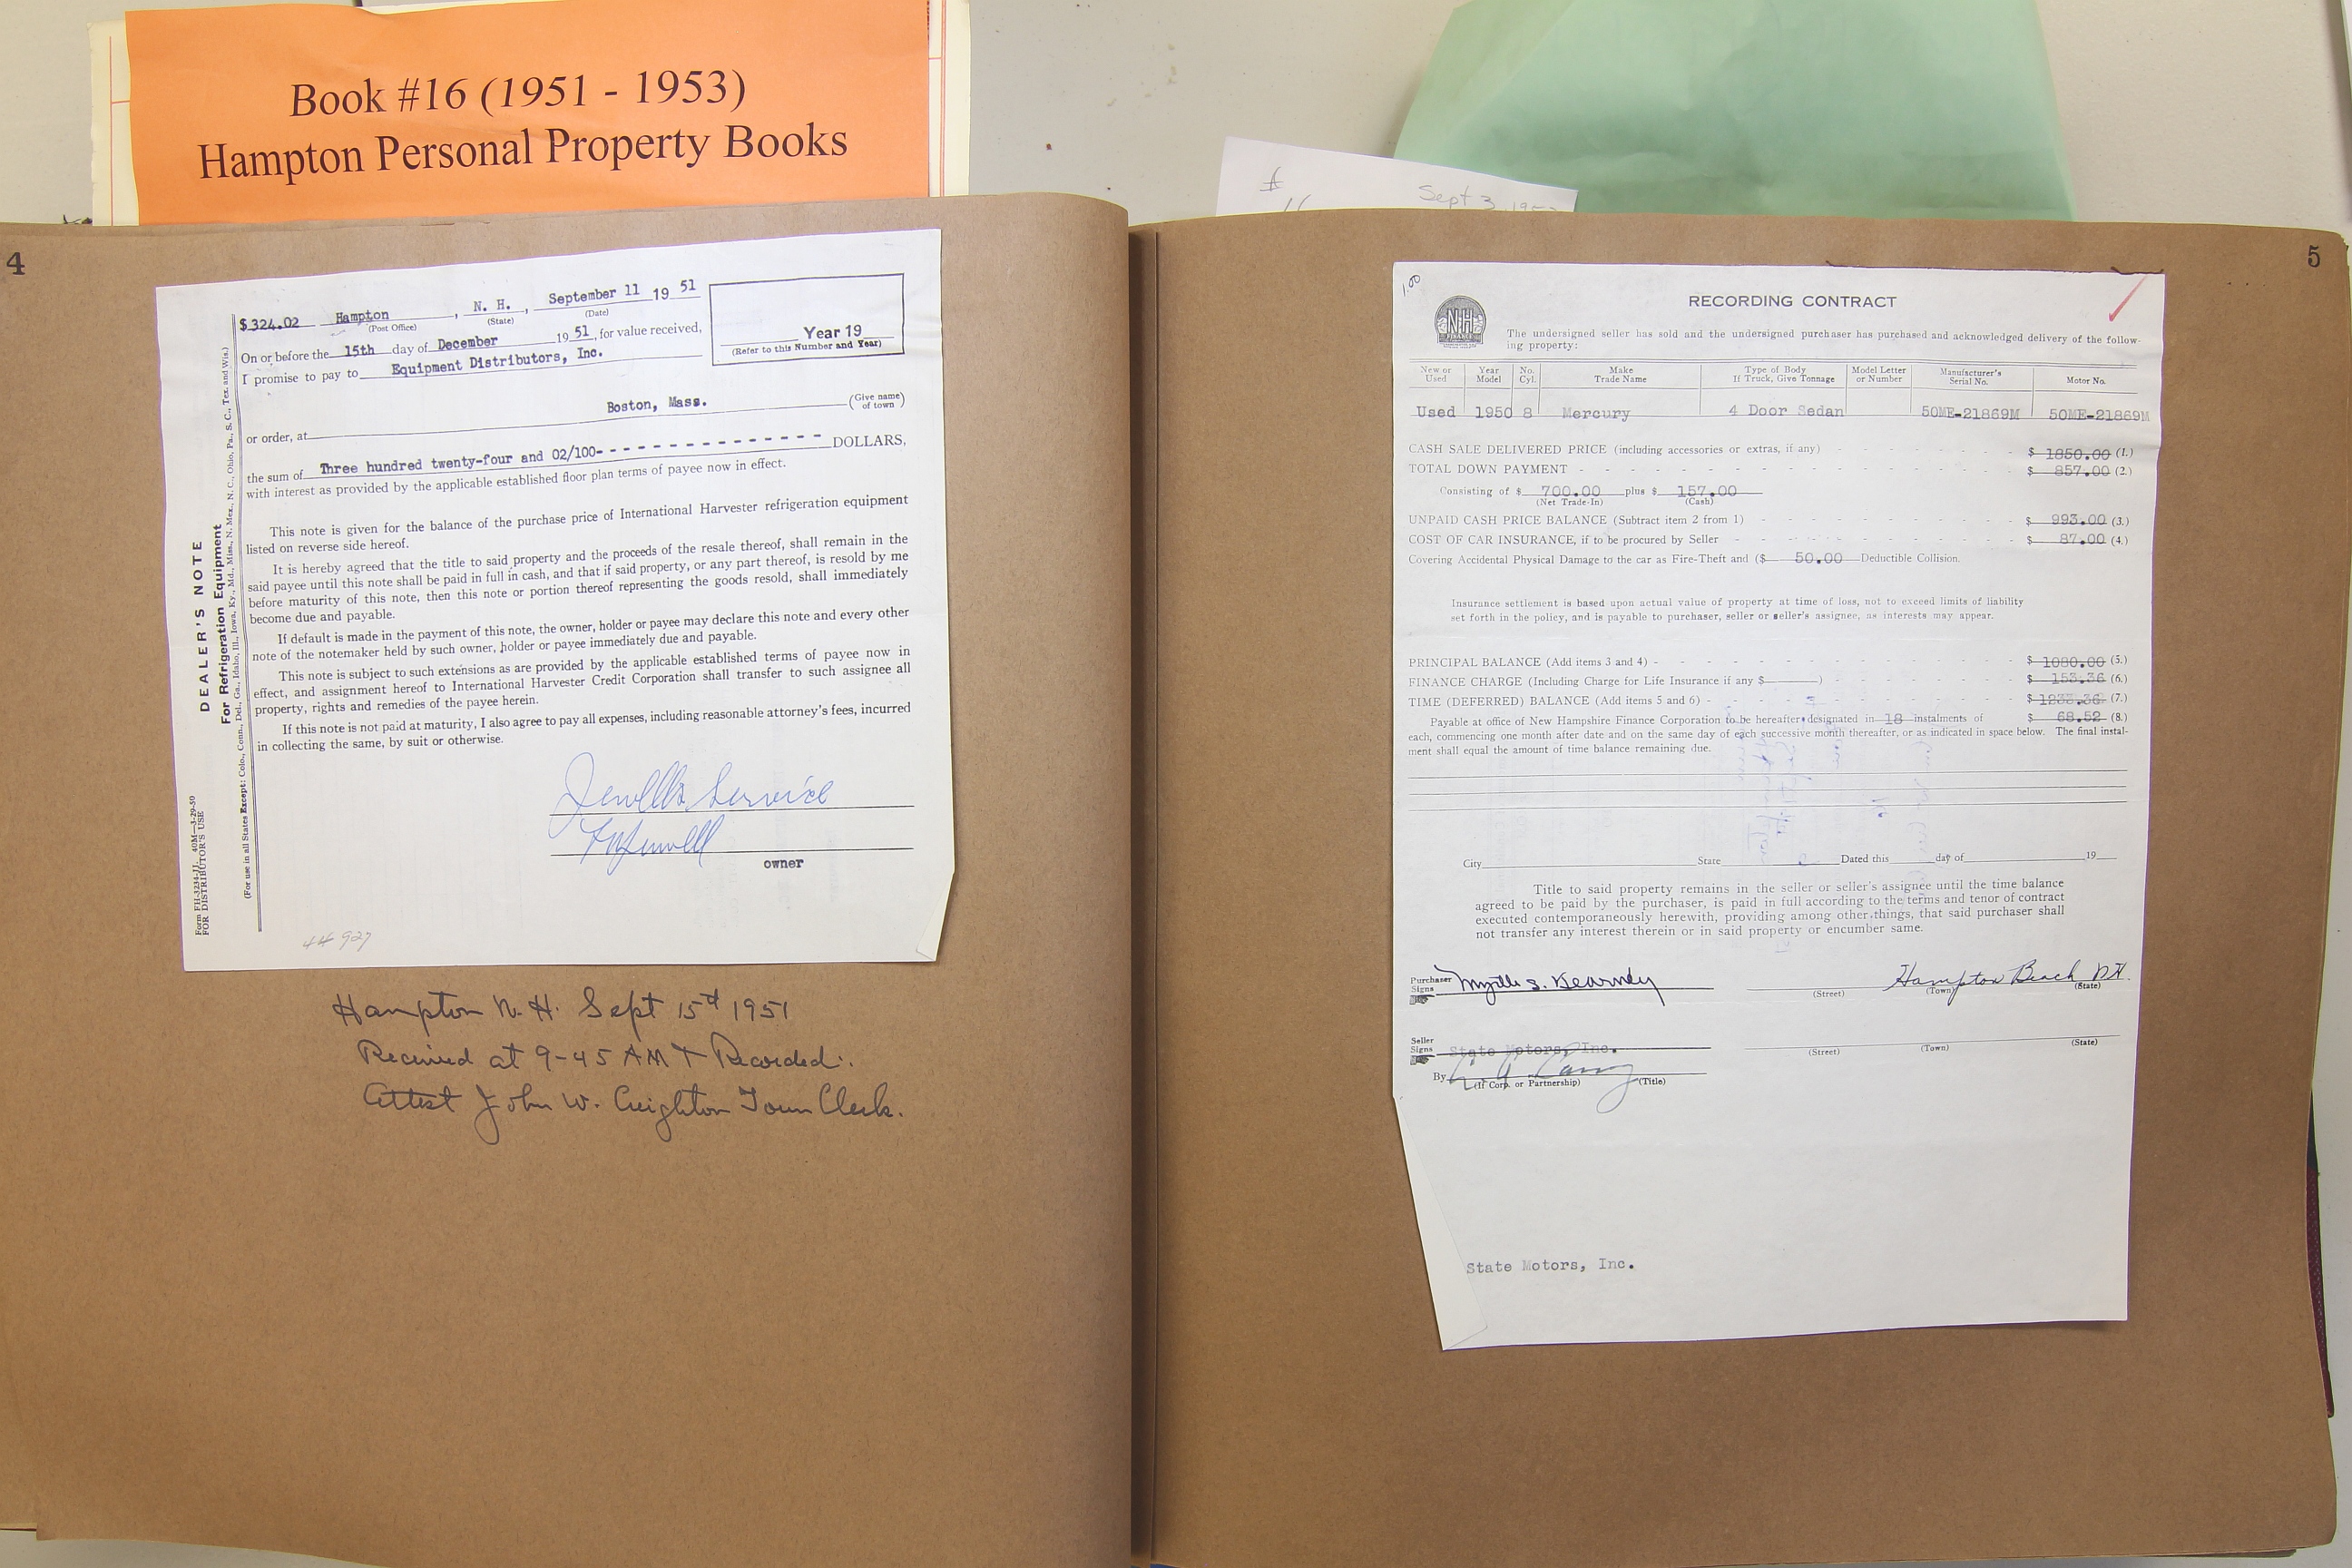 Book #16 (1951 - 1953)
Hampton Personal Property Books
Sept 3, 195
4
$324.02 Hampton, N. H., September 11 1951
(Post Office) (State) (Date)
On or before the 15th day of December 1951, for value received,
I promise to pay to Equipment Distributors, Inc.
Year 19
(Refer to this Number and Year)
or order, at Boston, Mass. (Give name of town)
the sum of Three hundred twenty-four and 02/100- - - - - - - - - - - - - - - DOLLARS,
with interest as provided by the applicable established floor plan terms of payee now in effect.
This note is given for the balance of the purchase price of International Harvester refrigeration equipment
listed on reverse side hereof.
It is hereby agreed that the title to said property and the proceeds of the resale thereof, shall remain in the
said payee until this note shall be paid in full in cash, and that if said property, or any part thereof, is resold by me
before maturity of this note, then this note or portion thereof representing the goods resold, shall immediately
become due and payable.
If default is made in the payment of this note, the owner, holder or payee may declare this note and every other
note of the notemaker held by such owner, holder or payee immediately due and payable.
This note is subject to such extensions as are provided by the applicable established terms of payee now in
effect, and assignment hereof to International Harvester Credit Corporation shall transfer to such assignee all
property, rights and remedies of the payee herein.
If this note is not paid at maturity, I also agree to pay all expenses, including reasonable attorney's fees, incurred
in collecting the same, by suit or otherwise.
Jewells Service
Jewell
owner
DEALER'S NOTE
For Refrigeration Equipment
(For use in all States Except: Colo., Conn., Del., Ga., Idaho, Ill., Iowa, Ky., Md., Miss., N. Mex., N. C., Ohio, Pa., S. C., Tex. and Wis.)
Form FH-3234-JJ. 40M—3-29-50
FOR DISTRIBUTOR'S USE
44 927
Hampton N. H. Sept 15th 1951
Received at 9-45 AM + Recorded:
Attest John W. Creighton Town Clerk.
5
1.00
NH
FINANCE
RECORDING CONTRACT
The undersigned seller has sold and the undersigned purchaser has purchased and acknowledged delivery of the follow-
ing property:
New or Used Year Model No. Cyl. Make Trade Name Type of Body If Truck, Give Tonnage Model Letter or Number Manufacturer's Serial No. Motor No.
Used 1950 8 Mercury 4 Door Sedan 50ME-21869M 50ME-21869M
CASH SALE DELIVERED PRICE (including accessories or extras, if any) - - - - - - - - $ 1850.00 (1.)
TOTAL DOWN PAYMENT - - - - - - - - - - - - - - - - $ 857.00 (2.)
Consisting of $ 700.00 plus $ 157.00
(Net Trade-In) (Cash)
UNPAID CASH PRICE BALANCE (Subtract item 2 from 1) - - - - - - - - - - $ 993.00 (3.)
COST OF CAR INSURANCE, if to be procured by Seller - - - - - - - - - - - $ 87.00 (4.)
Covering Accidental Physical Damage to the car as Fire-Theft and ($ 50.00 Deductible Collision.
Insurance settlement is based upon actual value of property at time of loss, not to exceed limits of liability
set forth in the policy, and is payable to purchaser, seller or seller's assignee, as interests may appear.
PRINCIPAL BALANCE (Add items 3 and 4) - - - - - - - - - - - - - - $ 1080.00 (5.)
FINANCE CHARGE (Including Charge for Life Insurance if any $ ) - - - - - - - - $ 153.36 (6.)
TIME (DEFERRED) BALANCE (Add items 5 and 6) - - - - - - - - - - - - $ 1233.36 (7.)
Payable at office of New Hampshire Finance Corporation to be hereafter designated in 18 instalments of $ 68.52 (8.)
each, commencing one month after date and on the same day of each successive month thereafter, or as indicated in space below. The final instal-
ment shall equal the amount of time balance remaining due.
City State Dated this day of 19
Title to said property remains in the seller or seller's assignee until the time balance
agreed to be paid by the purchaser, is paid in full according to the terms and tenor of contract
executed contemporaneously herewith, providing among other things, that said purchaser shall
not transfer any interest therein or in said property or encumber same.
Purchaser Signs Myrtle S. Kearney Hampton Beach NH.
(Street) (Town) (State)
Seller Signs State Motors, Inc.
(Street) (Town) (State)
By
(If Corp. or Partnership) (Title)
State Motors, Inc.